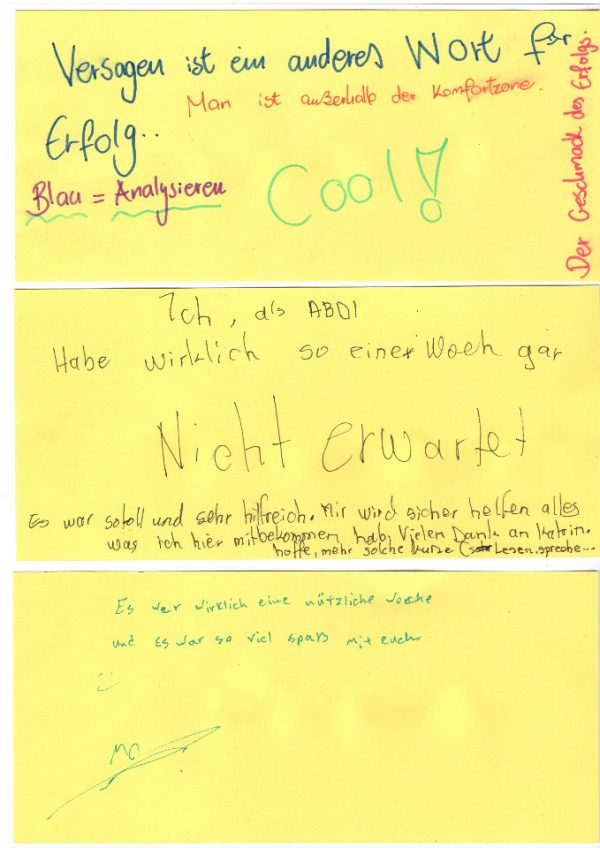 Versagen ist ein anderes Wort für
Man ist außerhalb der Komfortzone.
Erfolg..
Blau = Analysieren
Cool!
Der Geschmack des Erfolgs.
Ich, als ABDI
Habe wirklich so einer Woch gar
Nicht erwartet
Es war sotoll und sehr hilfreich. Mir wird sicher helfen alles
was ich hier mitbekommen hab, Vielen Dank an Katrin.
hoffe, mehr solche kurze Lesen, spreche...
Es wer wirklich eine nützliche woche
und es war so viel spaß mit euch